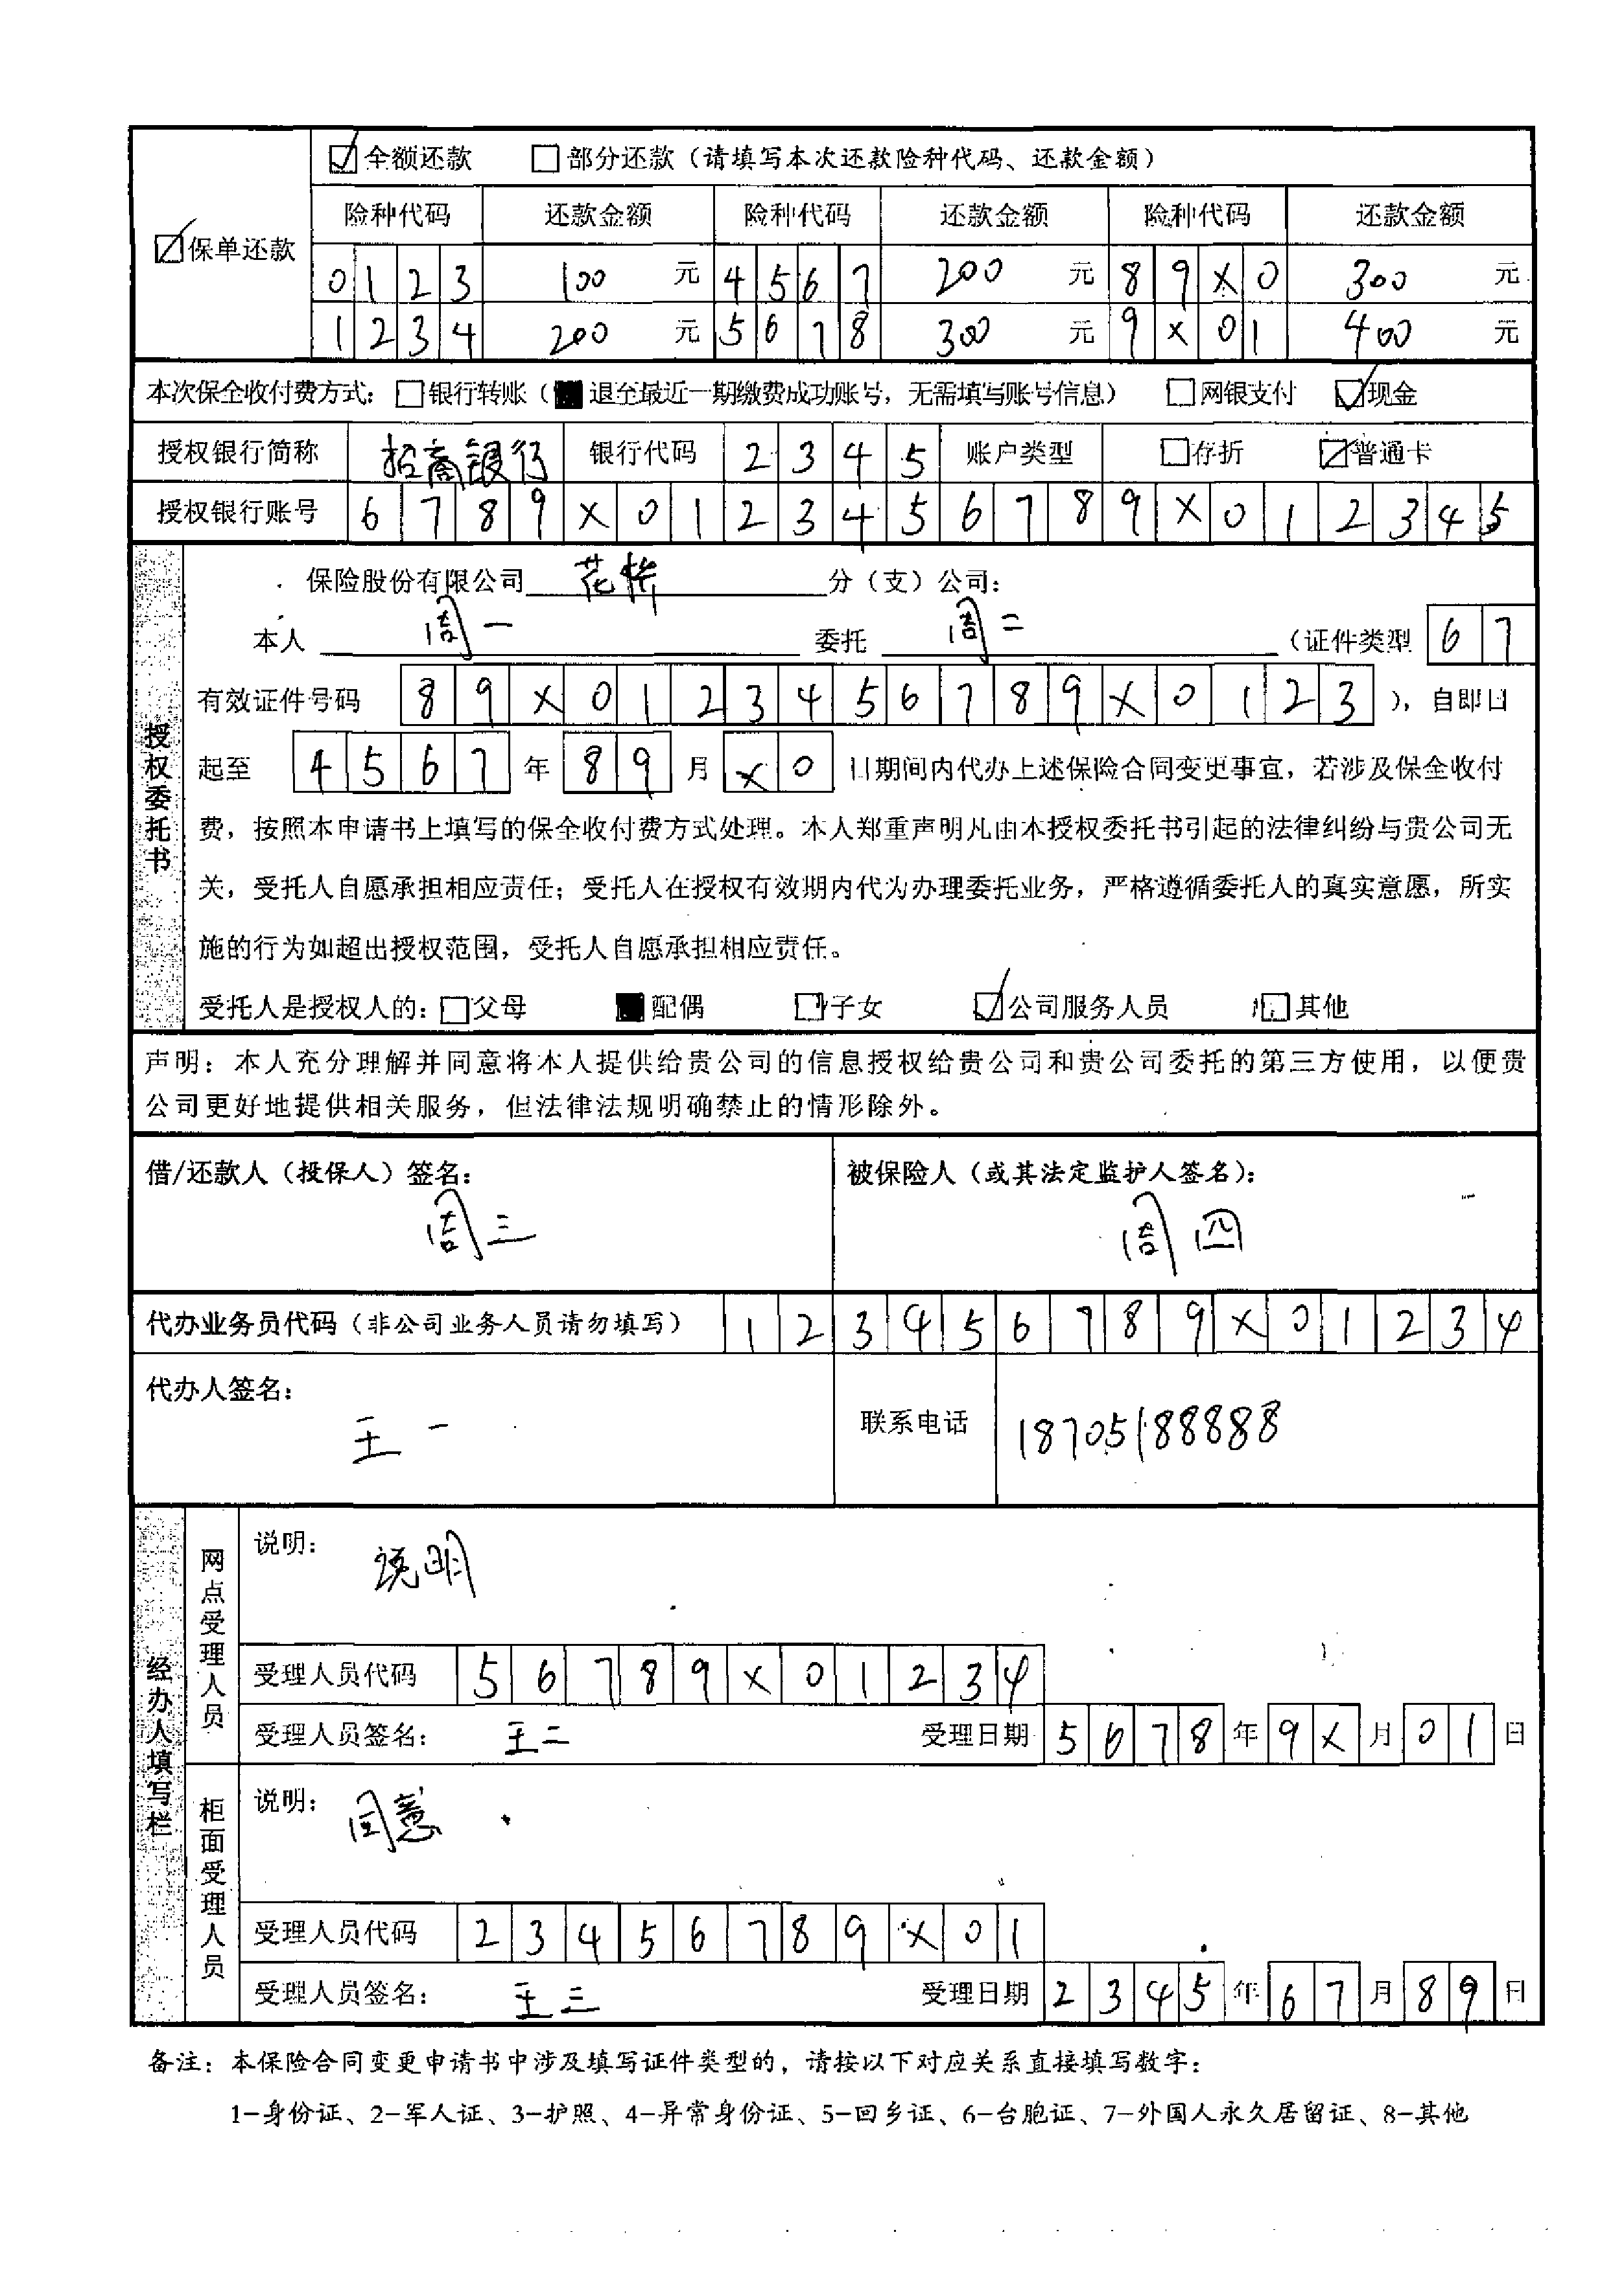 ☑全额还款 ☐部分还款（请填写本次还款险种代码、还款金额）
☑保单还款
险种代码 还款金额 险种代码 还款金额 险种代码 还款金额
0123 100 元 4567 200 元 89X0 300 元
1234 200 元 5678 300 元 9X01 400 元
本次保全收付费方式：☐银行转账（■退至最近一期缴费成功账号，无需填写账号信息） ☐网银支付 ☑现金
授权银行简称 招商银行 银行代码 2345 账户类型 ☐存折 ☑普通卡
授权银行账号 6789X0123456789X012345
授权委托书
保险股份有限公司 花桥 分（支）公司：
本人 周一 委托 周二 （证件类型 67
有效证件号码 89X0123456789X0123 ），自即日
起至 4567 年 89 月 X0 日期间内代办上述保险合同变更事宜，若涉及保全收付
费，按照本申请书上填写的保全收付费方式处理。本人郑重声明凡由本授权委托书引起的法律纠纷与贵公司无
关，受托人自愿承担相应责任；受托人在授权有效期内代为办理委托业务，严格遵循委托人的真实意愿，所实
施的行为如超出授权范围，受托人自愿承担相应责任。
受托人是授权人的：☐父母 ■配偶 ☐子女 ☑公司服务人员 ☐其他
声明：本人充分理解并同意将本人提供给贵公司的信息授权给贵公司和贵公司委托的第三方使用，以便贵
公司更好地提供相关服务，但法律法规明确禁止的情形除外。
借/还款人（投保人）签名： 被保险人（或其法定监护人签名）：
周三 周四
代办业务员代码（非公司业务人员请勿填写） 123456789X01234
代办人签名：
王一 联系电话 18705188888
经办人填写栏
网点受理人员
说明：
说明
受理人员代码 56789X01234
受理人员签名： 王二 受理日期 5678 年 9X 月 01 日
柜面受理人员
说明： 同意
受理人员代码 23456789X01
受理人员签名： 王三 受理日期 2345 年 67 月 89 日
备注：本保险合同变更申请书中涉及填写证件类型的，请按以下对应关系直接填写数字：
1-身份证、2-军人证、3-护照、4-异常身份证、5-回乡证、6-台胞证、7-外国人永久居留证、8-其他